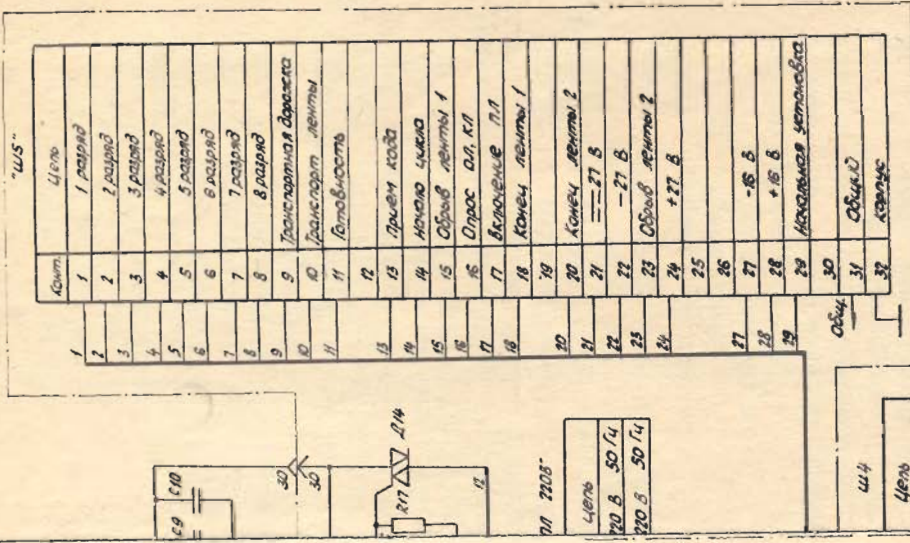 "Ш5"
Конт. Цепь
1 1 разряд
2 2 разряд
3 3 разряд
4 4 разряд
5 5 разряд
6 6 разряд
7 7 разряд
8 8 разряд
9 Транспортная дорожка
10 Транспорт ленты
11 Готовность
12
13 Прием кода
14 Начало цикла
15 Обрыв ленты 1
16 Опрос ол. кл
17 Включение пл
18 Конец ленты 1
19
20 Конец ленты 2
21 -27 В
22 -27 В
23 Обрыв ленты 2
24 +27 В
25
26
27 -16 В
28 +16 В
29 Начальная установка
30
31 Общий
32 Корпус
1
2
3
4
5
6
7
8
9
10
11
13
14
15
16
17
18
20
21
22
23
24
27
28
29
Общ.
С9
С10
30
30
R17
Д14
12
ПЛ 220В"
Цепь
220 В 50 Гц
220 В 50 Гц
Ш4
Цепь